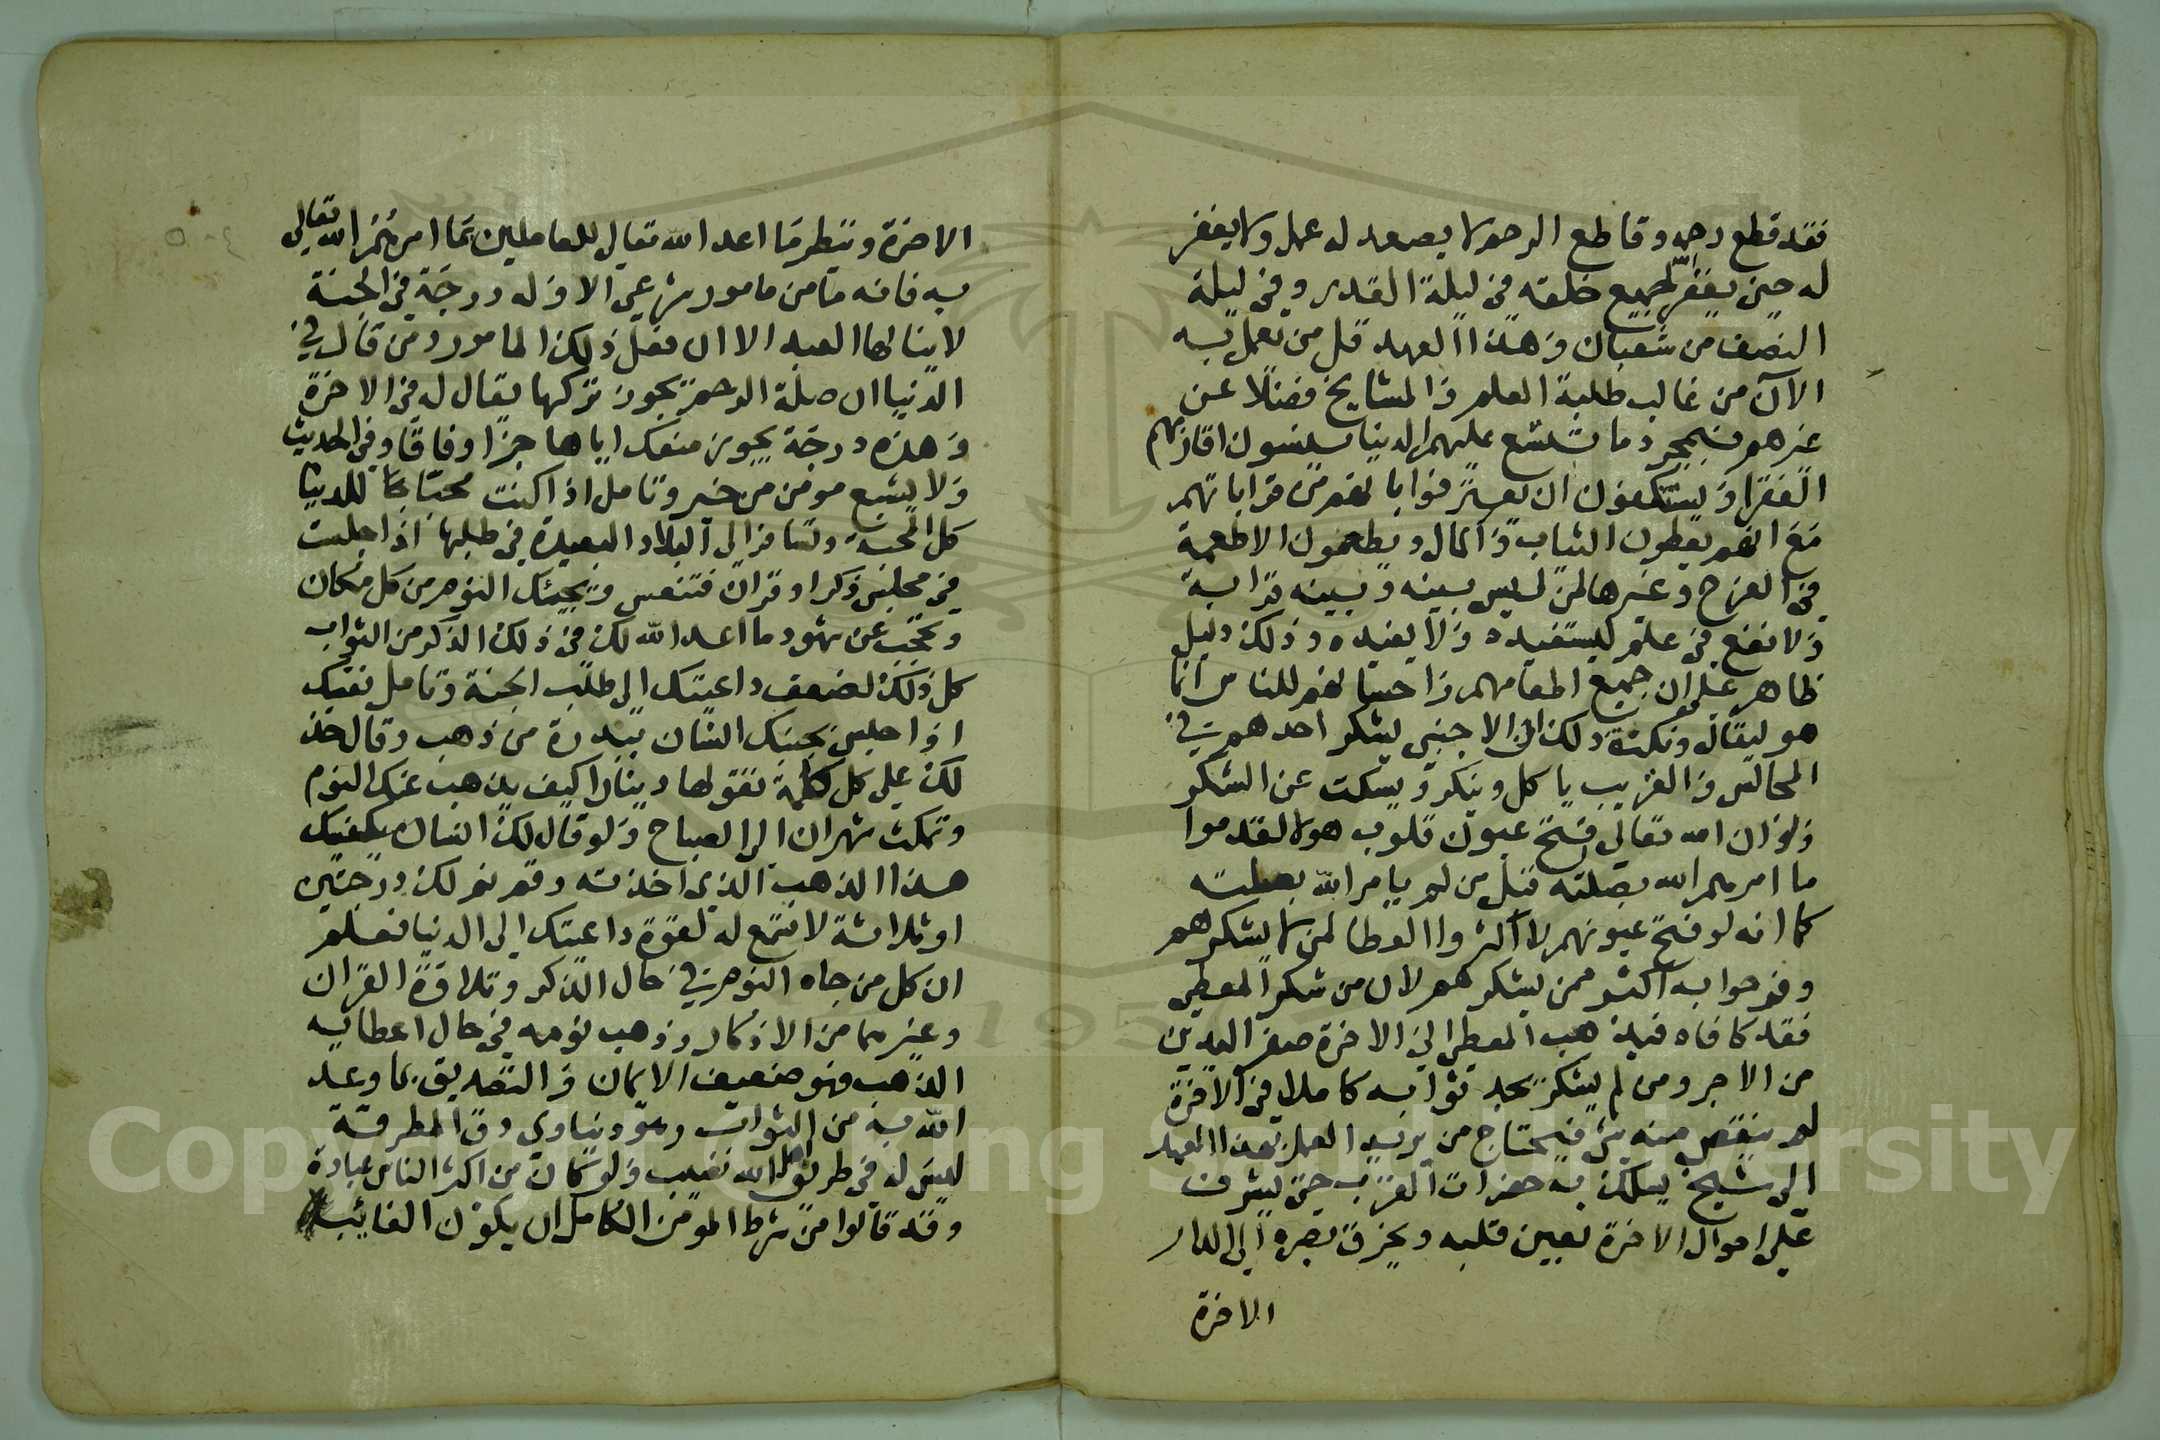 فقد قطع رحمه وقاطع الرحم لا يصعد له عمل ولا يغفر
له حين يغفر لجميع خلقه في ليلة القدر وفي ليلة
النصف من شعبان وهذا العهد قل من يعمل به
الآن من غالب طلبة العلم والمشايخ فضلا عن
غيرهم فبمجرد ما تتسع عليهم الدنيا ينسون اقاربهم
الفقرا ويستنكفون ان يعترفوا بانهم من قراباتهم
مع انهم يعطون الثياب والمال ويطعمون الاطعمة
في الفرح وغيرها لمن ليس بينه وبينه قرابة
ولا نفع في علم ليستفيده ولا يفيده وذلك دليل
ظاهر على ان جميع اطعامهم واحسانهم للناس انما
هو ليقال ونكتة ذلك ان الاجنبي يشكر احدهم في
المجالس والقريب ياكل وينكر ويسكت عن الشكر
ولو ان الله تعالى فتح عيون قلوب هولا لقدموا
ما امرهم الله بصلته قبل من لم يامر الله بصلته
كما انه لو فتح عيونهم لاكثروا العطا لمن لا يشكرهم
وفرحوا به اكثر ممن يشكرهم لان من شكر المعطي
فقد كافاه فيذهب المعطي الى الاخرة صفر اليدين
من الاجر ومن لم يشكر يجد ثوابه كاملا في الاخرة
لم ينقص منه شي فيحتاج من يريد العمل بهذا العهد
الى شيخ يسلك به حضرات القرب حتى يشرف
على احوال الاخرة بعين قلبه ويخرق بصره الى الدار
الاخرة
الاخرة وينظر ما اعد الله تعالى للعاملين بما امرهم الله تعالى
به فانه ما من مامور شرعي الا وله درجة في الجنة
لا ينالها العبد الا ان فعل ذلك المامور ومن قال في
الدنيا ان صلة الرحم يجوز تركها يقال له في الاخرة
وهذه درجة يجوز منعك اياها جزا وفاقا وفي الحديث
ولا يشبع مومن من خير وتامل اذا كنت محتاجا للدنيا
كل المحبة وتسافر الى البلاد البعيدة في طلبها اذا جلست
في مجلس ذكر او قران فتنعس ويجيئك النوم من كل مكان
وتحجب عن شهود ما اعد الله لك في ذلك الذكر من الثواب
كل ذلك لضعف داعيتك الى طلب الجنة وتامل نفسك
اذا جلس بجنبك انسان ببدرة من ذهب وقال خذ
لك على كل كلمة تقولها دينارا كيف يذهب عنك النوم
وتمكث سهران الى الصباح ولو قال لك انسان يكفيك
هذا الذهب الذي اخذته وقم نم لك درجتين
او ثلاثة لا تسمع له لقوة داعيتك الى الدنيا فعلم
ان كل من جاه النوم في حال الذكر وتلاوة القران
وغيرهما من الاذكار وذهب نومه في حال اعطائه
الذهب فهو ضعيف الايمان والتصديق بما وعد
الله به من الثواب وهو دنياوي دق المطرقة
ليس له في طريق اهل الله نصيب ولو كان من اكثر الناس عبادة
وقد قالوا من شرط المومن الكامل ان يكون الغائب